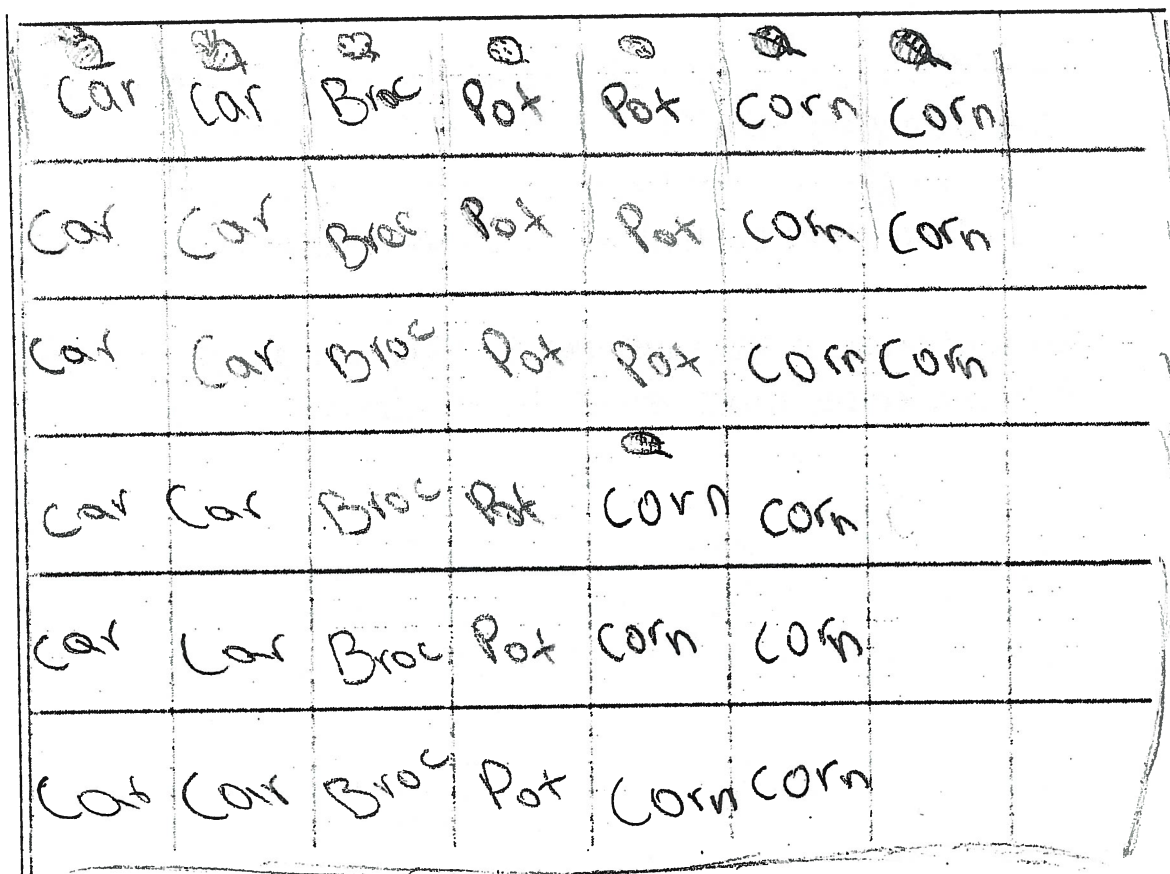 Car Car Broc Pot Pot Corn Corn
Car Car Broc Pot Pot Corn Corn
Car Car Broc Pot Pot Corn Corn
Car Car Broc Pot Corn Corn
Car Car Broc Pot Corn Corn
Car Car Broc Pot Corn Corn